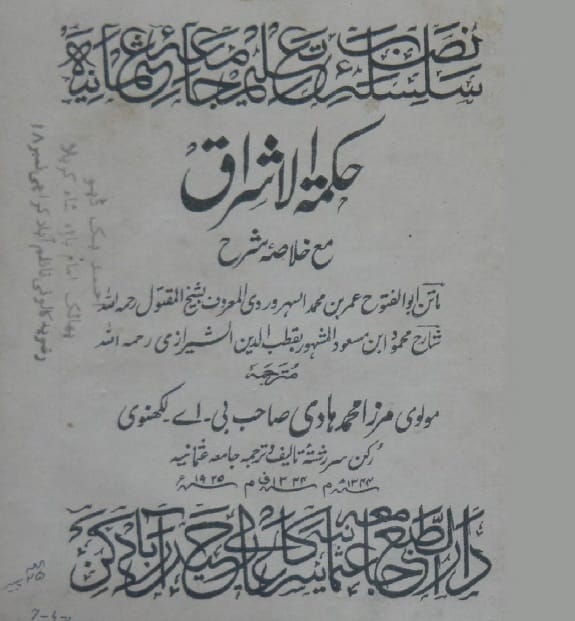 سلسلۂ نصاب تعلیم جامعۂ عثمانیہ
حکمۃ الاشراق
مع خلاصۂ شرح
ماتن ابوالفتوح عمر بن محمد السہروردی المعروف بشیخ المقتول رحمہ اللہ
شارح محمود ابن مسعود المشہور بقطب الدین الشیرازی رحمہ اللہ
مترجمۂ
مولوی مرزا محمد ہادی صاحب بی۔ اے۔ لکھنوی
رکن سررشتۂ تالیف و ترجمہ جامعہ عثمانیہ
۱۳۴۴ھ م ۱۳۳۴ف م ۱۹۲۵ء
دار الطبع جامعہ عثمانیہ سرکار عالی حیدرآباد دکن
احمد بک ڈپو
پھاٹک امام باڑہ شاہ کربلا
رضویہ کالونی ناظم آباد کراچی نمبر ۱۸